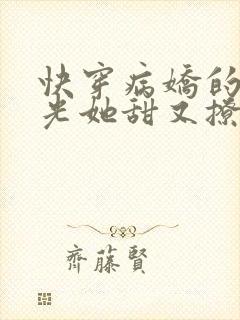 快穿病嬌的
光她甜又撩
齊藤賢